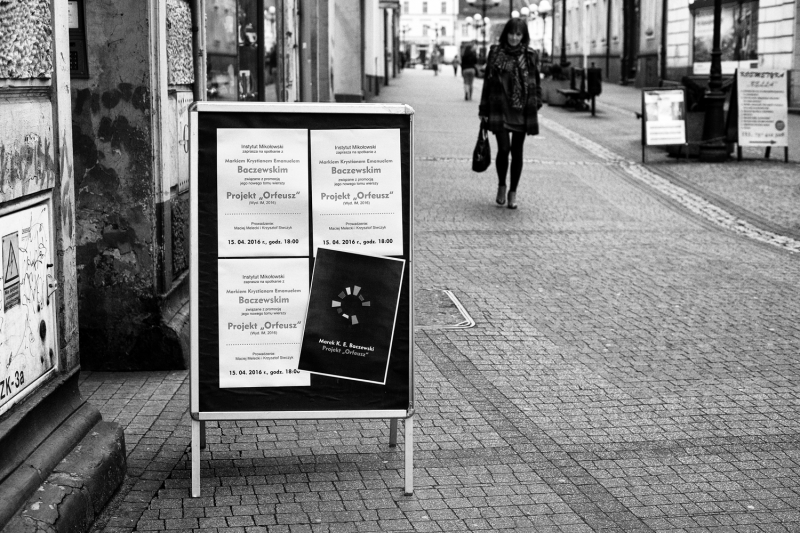 Instytut Mikołowski
zaprasza na spotkanie z
Markiem Krystianem Emanuelem
Baczewskim
związane z promocją
jego nowego tomu wierszy
Projekt „Orfeusz”
(Wyd. IM, 2016)
Prowadzenie:
Maciej Melecki i Krzysztof Siwczyk
15. 04. 2016 r., godz. 18:00
Instytut Mikołowski
zaprasza na spotkanie z
Markiem Krystianem Emanuelem
Baczewskim
związane z promocją
jego nowego tomu wierszy
Projekt „Orfeusz”
(Wyd. IM, 2016)
Prowadzenie:
Maciej Melecki i Krzysztof Siwczyk
15. 04. 2016 r., godz. 18:00
Instytut Mikołowski
zaprasza na spotkanie z
Markiem Krystianem Emanuelem
Baczewskim
związane z promocją
jego nowego tomu wierszy
Projekt „Orfeusz”
(Wyd. IM, 2016)
Prowadzenie:
Maciej Melecki i Krzysztof Siwczyk
15. 04. 2016 r., godz. 18:00
Marek K. E. Baczewski
Projekt „Orfeusz”
ZK-3a
KOSMETYKA